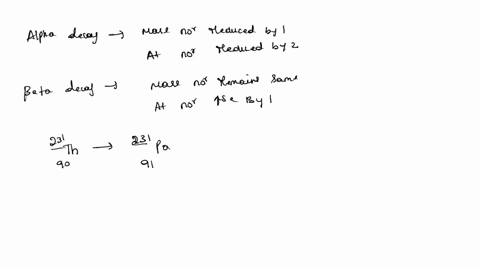 Alpha decay → Mass noʳ Reduced by 1
At noʳ reduced by 2
Beta decay → Mass noʳ Remains same
At noʳ ↑se By 1
²³¹₉₀Th → ²³¹₉₁Pa